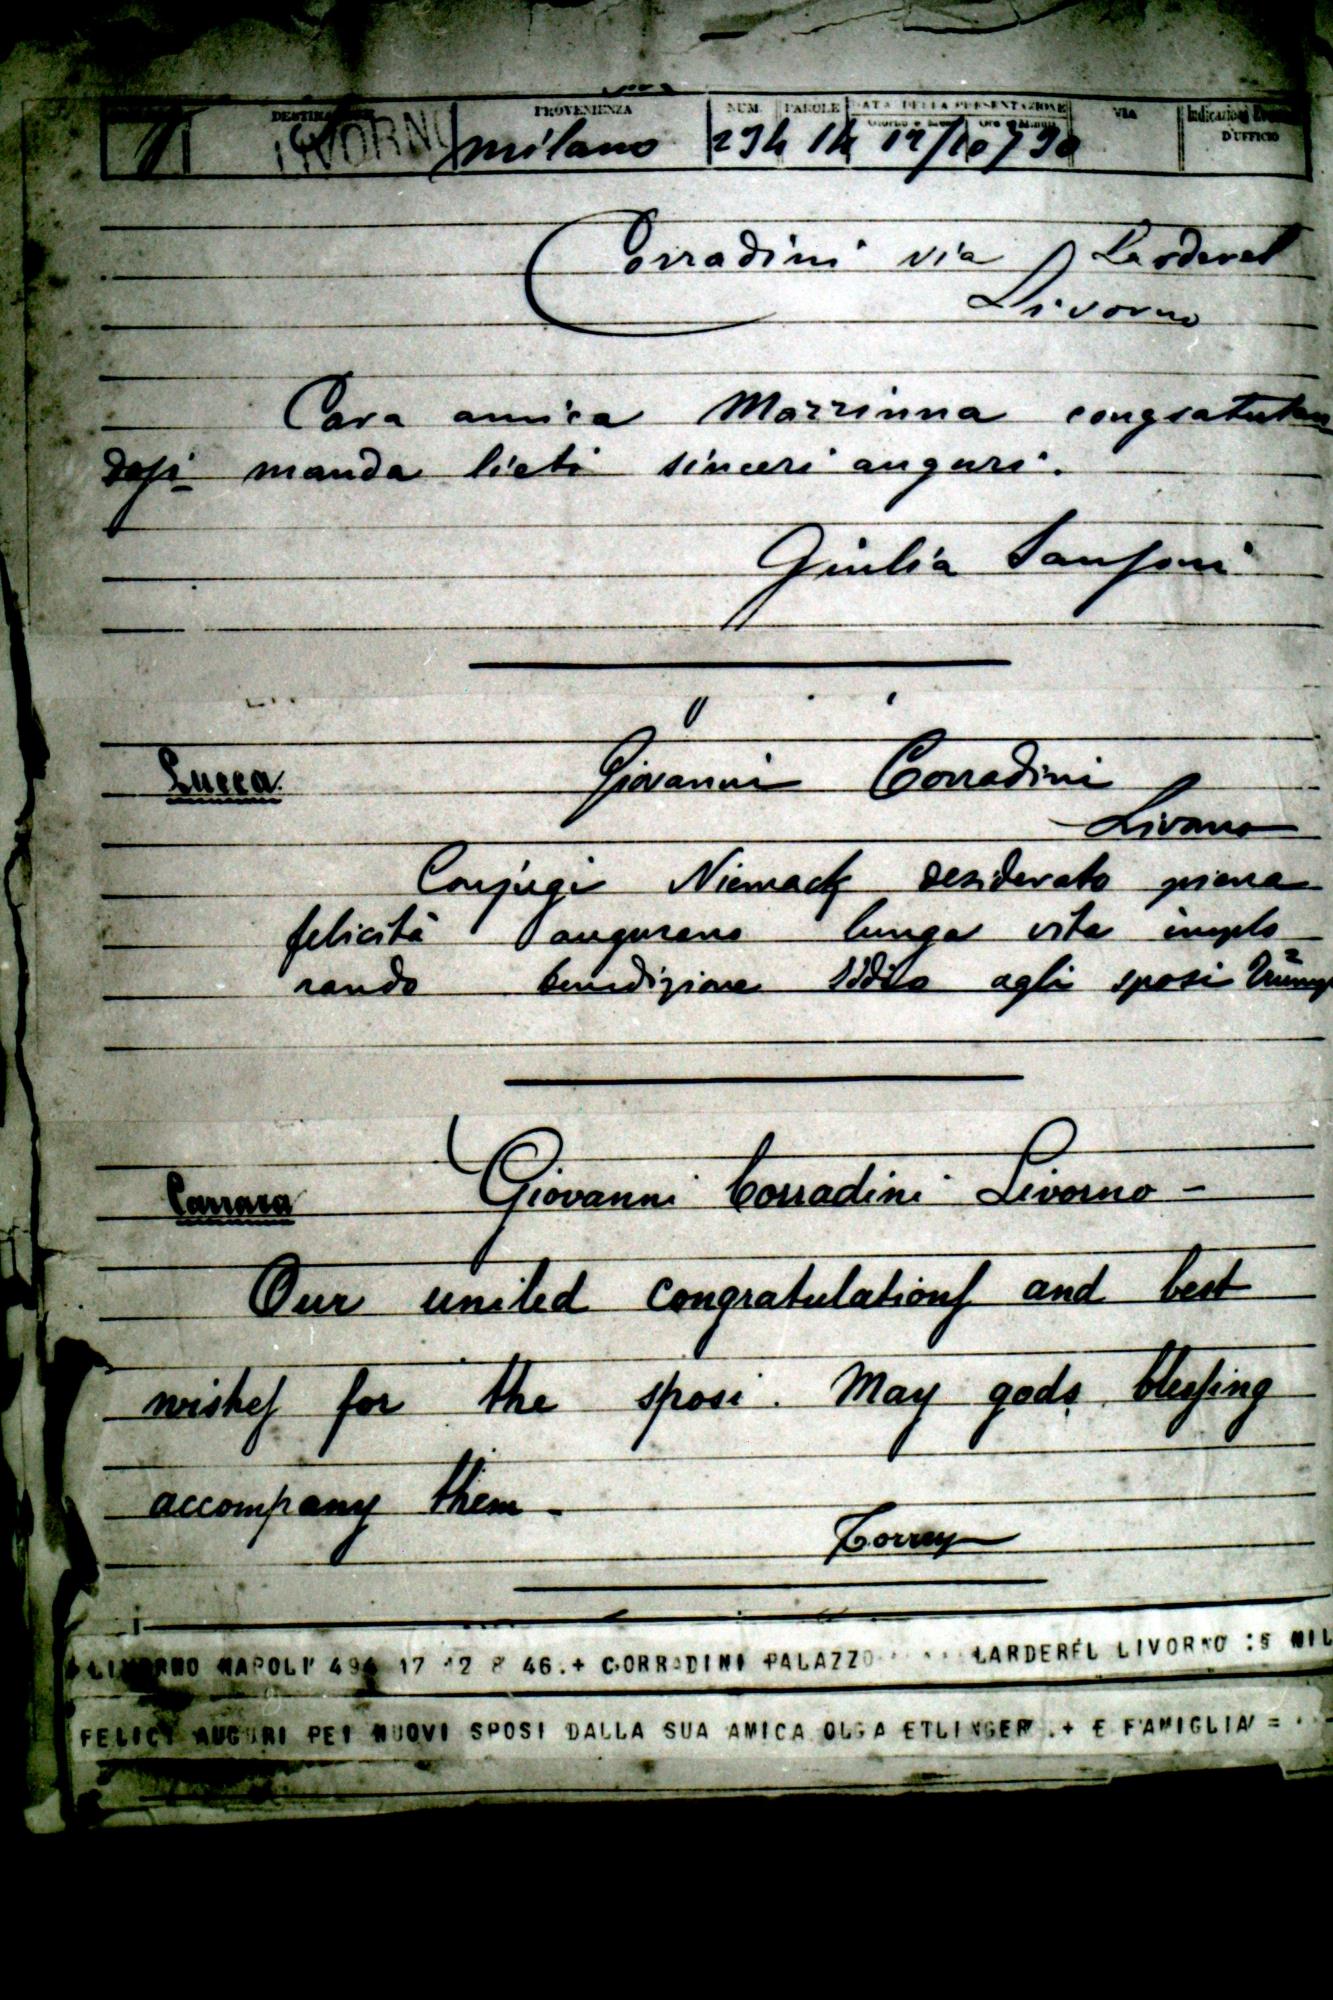 DESTINAZIONE PROVENIENZA NUM. PAROLE DATA DELLA PRESENTAZIONE VIA Indicazioni Eventuali
Giorno e Mese Ore e Minuti D'UFFICIO
LIVORNO Milano 294 14 12/10 / 30
Corradini via Larderel
Livorno
Cara amica Mazzinna congratulan
dosi manda lieti sinceri auguri.
Giulia Sansoni
Lucca
Giovanni Corradini
Livorno
Conjugi Niemack desiderato piena
felicità augurano lunga vita implo
rando benedizione Iddio agli sposi
Carrara
Giovanni Corradini Livorno -
Our united congratulations and best
wishes for the sposi. May gods blessing
accompany them -
Torrey
LIVORNO NAPOLI 494 17 12 8 46.+ CORRADINI PALAZZO LARDEREL LIVORNO
FELICI AUGURI PEI NUOVI SPOSI DALLA SUA AMICA OLGA ETLINGER .+ E FAMIGLIA =